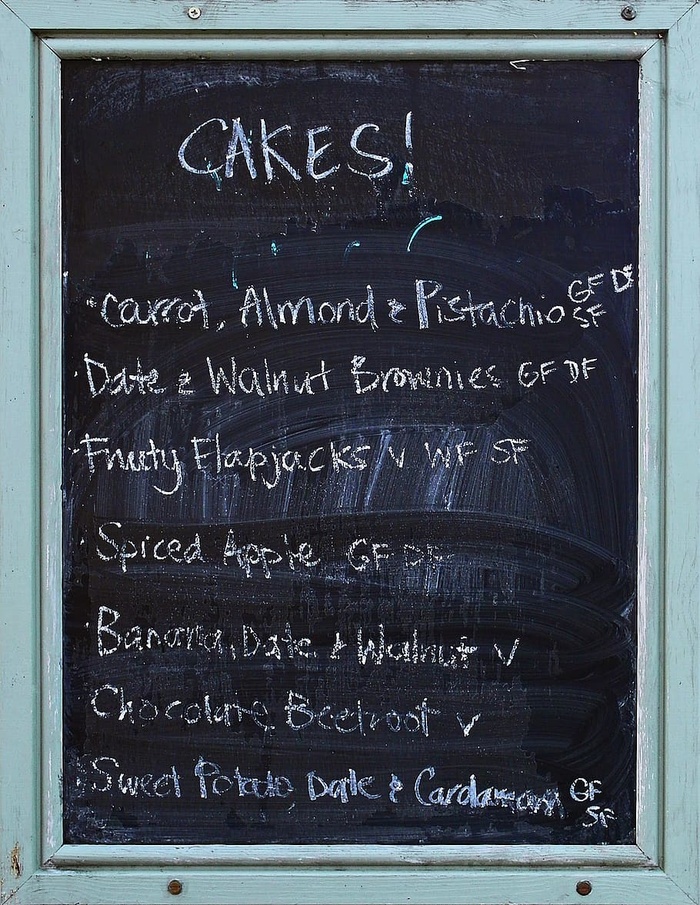 CAKES!
Carrot, Almond & Pistachio GF DF SF
Date & Walnut Brownies GF DF
Fruity Flapjacks V WF SF
Spiced Apple GF DF
Banana, Date & Walnut V
Chocolate Beetroot V
Sweet Potato, Date & Cardamom GF SF